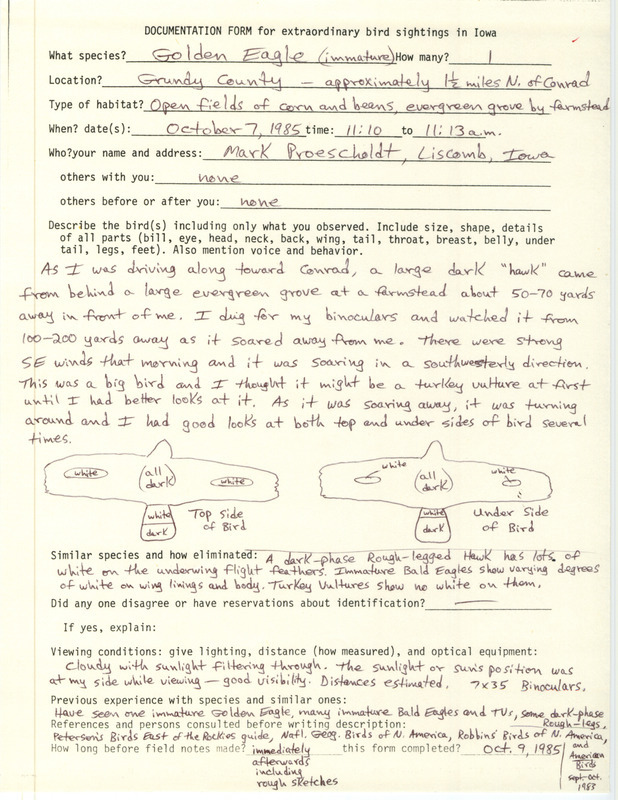 DOCUMENTATION FORM for extraordinary bird sightings in Iowa
What species? Golden Eagle (immature) How many? 1
Location? Grundy County — approximately 1½ miles N. of Conrad
Type of habitat? Open fields of corn and beans, evergreen grove by farmstead
When? date(s): October 7, 1985 time: 11:10 to 11:13 a.m.
Who?your name and address: Mark Proescholdt, Liscomb, Iowa
others with you: none
others before or after you: none
Describe the bird(s) including only what you observed. Include size, shape, details
of all parts (bill, eye, head, neck, back, wing, tail, throat, breast, belly, under
tail, legs, feet). Also mention voice and behavior.
As I was driving along toward Conrad, a large dark "hawk" came
from behind a large evergreen grove at a farmstead about 50-70 yards
away in front of me. I dug for my binoculars and watched it from
100-200 yards away as it soared away from me. There were strong
SE winds that morning and it was soaring in a southwesterly direction.
This was a big bird and I thought it might be a turkey vulture at first
until I had better looks at it. As it was soaring away, it was turning
around and I had good looks at both top and under sides of bird several
times.
white (all dark) white
white dark
Top side of Bird
white (all dark) white
white dark
Under Side of Bird
Similar species and how eliminated: A dark-phase Rough-legged Hawk has lots of
white on the underwing flight feathers. Immature Bald Eagles show varying degrees
of white on wing linings and body. Turkey Vultures show no white on them.
Did any one disagree or have reservations about identification? —
If yes, explain:
Viewing conditions: give lighting, distance (how measured), and optical equipment:
Cloudy with sunlight filtering through. The sunlight or sun's position was
at my side while viewing — good visibility. Distances estimated. 7x35 Binoculars.
Previous experience with species and similar ones:
Have seen one immature Golden Eagle, many immature Bald Eagles and TVs, some dark-phase
Rough-legs.
References and persons consulted before writing description:
Peterson's Birds East of the Rockies guide, Natl. Geog. Birds of N. America, Robbins' Birds of N. America,
and American Birds Sept.-Oct. 1983
How long before field notes made? immediately this form completed? Oct. 9, 1985
afterwards
including
rough sketches